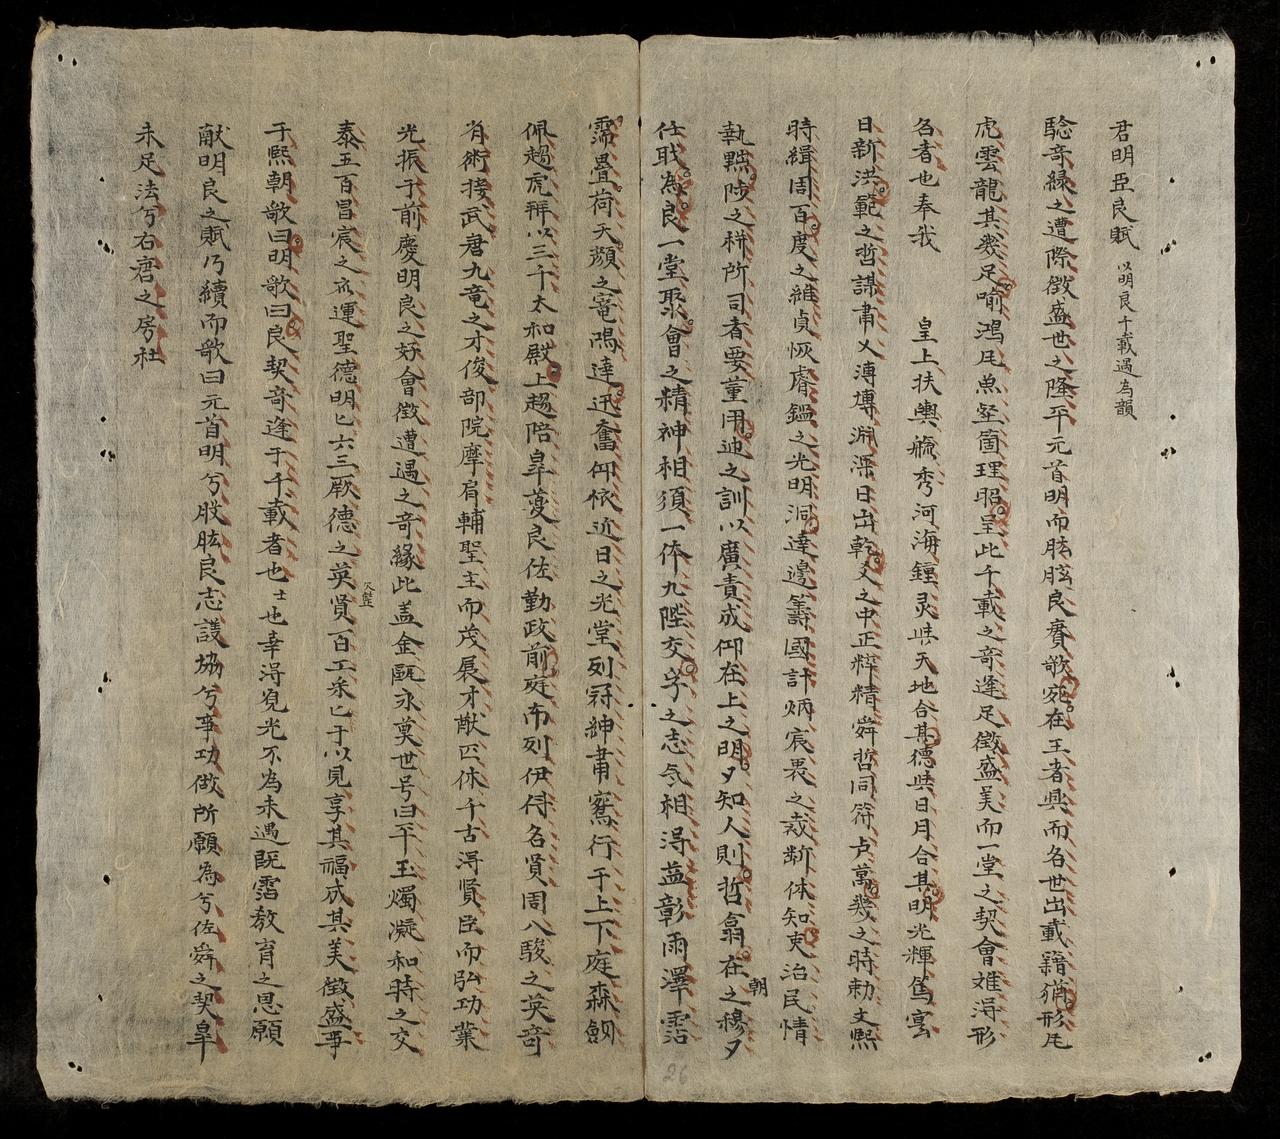 君明臣良賦 以明良千載遇為韻
騐竒縁之遭際徵盛世之隆平元首明而肱股良賡歌宛在王者興而名世出載籍猶形凡
虎雲龍其幾足喻鴻毛魚壑箇理昭呈此千載之竒逢足徵盛美而一堂之契會难淂形
名者也奉我 皇上扶輿毓秀河海鍾灵與天地合其德與日月合其明光輝篤宲
日新洪範之哲謀肅乂溥博淵深日出乾爻之中正粹精舜哲同符卢萬幾之時勅文熙
時緝周百度之維貞恢睿鑑之光明洞達邊籌國計炳宸衷之裁断体知吏治民情
執黜陟之栟所司者要董用廸之訓以廣責成仰在上之明夕知人則哲翕在朝之穆夕
仕戝為良一堂聚會之精神相須一体九陛交孚之志気相淂益彰雨澤霑
霈疊荷天頻之寵鴻逵迅奮仰依近日之光堂列冠紳肅鴛行于上下庭森劔
佩趨虎拜以三千太和殿上趨陪皐蘷良佐勤政前庭布列伊傅名賢周八駿之英竒
有術接武唐九竜之才俊部院摩肩輔聖主而茂展才猷匹休千古淂賢臣而弘功業
光振于前慶明良之好會徵遭遇之竒緣此盖金甌永奠世号曰平玉燭凝和時之交
泰五百昌宸之𠅤運聖德明匕六三厥德之英贤百工釆匕于以見享其福成其美徵盛事
于熙朝歌曰明歌曰良契竒逢于千載者也士也幸淂覓光不為未遇既霑教育之恩願
献明良之賦乃續而歌曰元首明兮股肱良志議協兮事功做所願為兮佐舜之契皐
未足法兮右唐之房杜
26